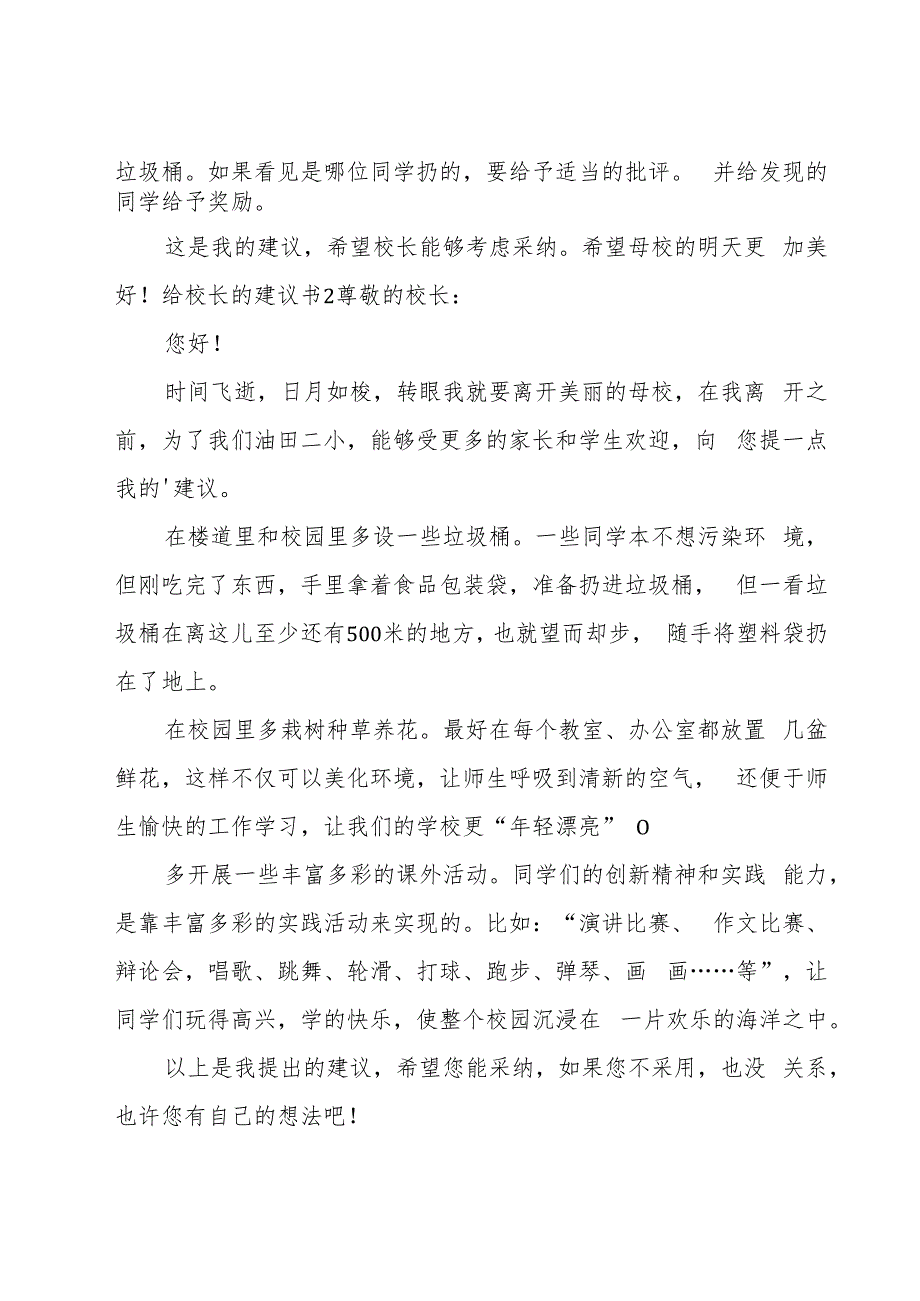 垃圾桶。如果看见是哪位同学扔的，要给予适当的批评。 并给发现的
同学给予奖励。
这是我的建议，希望校长能够考虑采纳。希望母校的明天更 加美
好！给校长的建议书2尊敬的校长：
您好！
时间飞逝，日月如梭，转眼我就要离开美丽的母校，在我离 开之
前，为了我们油田二小，能够受更多的家长和学生欢迎，向 您提一点
我的'建议。
在楼道里和校园里多设一些垃圾桶。一些同学本不想污染环 境，
但刚吃完了东西，手里拿着食品包装袋，准备扔进垃圾桶， 但一看垃
圾桶在离这儿至少还有500米的地方，也就望而却步， 随手将塑料袋扔
在了地上。
在校园里多栽树种草养花。最好在每个教室、办公室都放置 几盆
鲜花，这样不仅可以美化环境，让师生呼吸到清新的空气， 还便于师
生愉快的工作学习，让我们的学校更“年轻漂亮” O
多开展一些丰富多彩的课外活动。同学们的创新精神和实践 能力，
是靠丰富多彩的实践活动来实现的。比如：“演讲比赛、 作文比赛、
辩论会，唱歌、跳舞、轮滑、打球、跑步、弹琴、画 画……等”，让
同学们玩得高兴，学的快乐，使整个校园沉浸在 一片欢乐的海洋之中。
以上是我提出的建议，希望您能采纳，如果您不采用，也没 关系，
也许您有自己的想法吧！